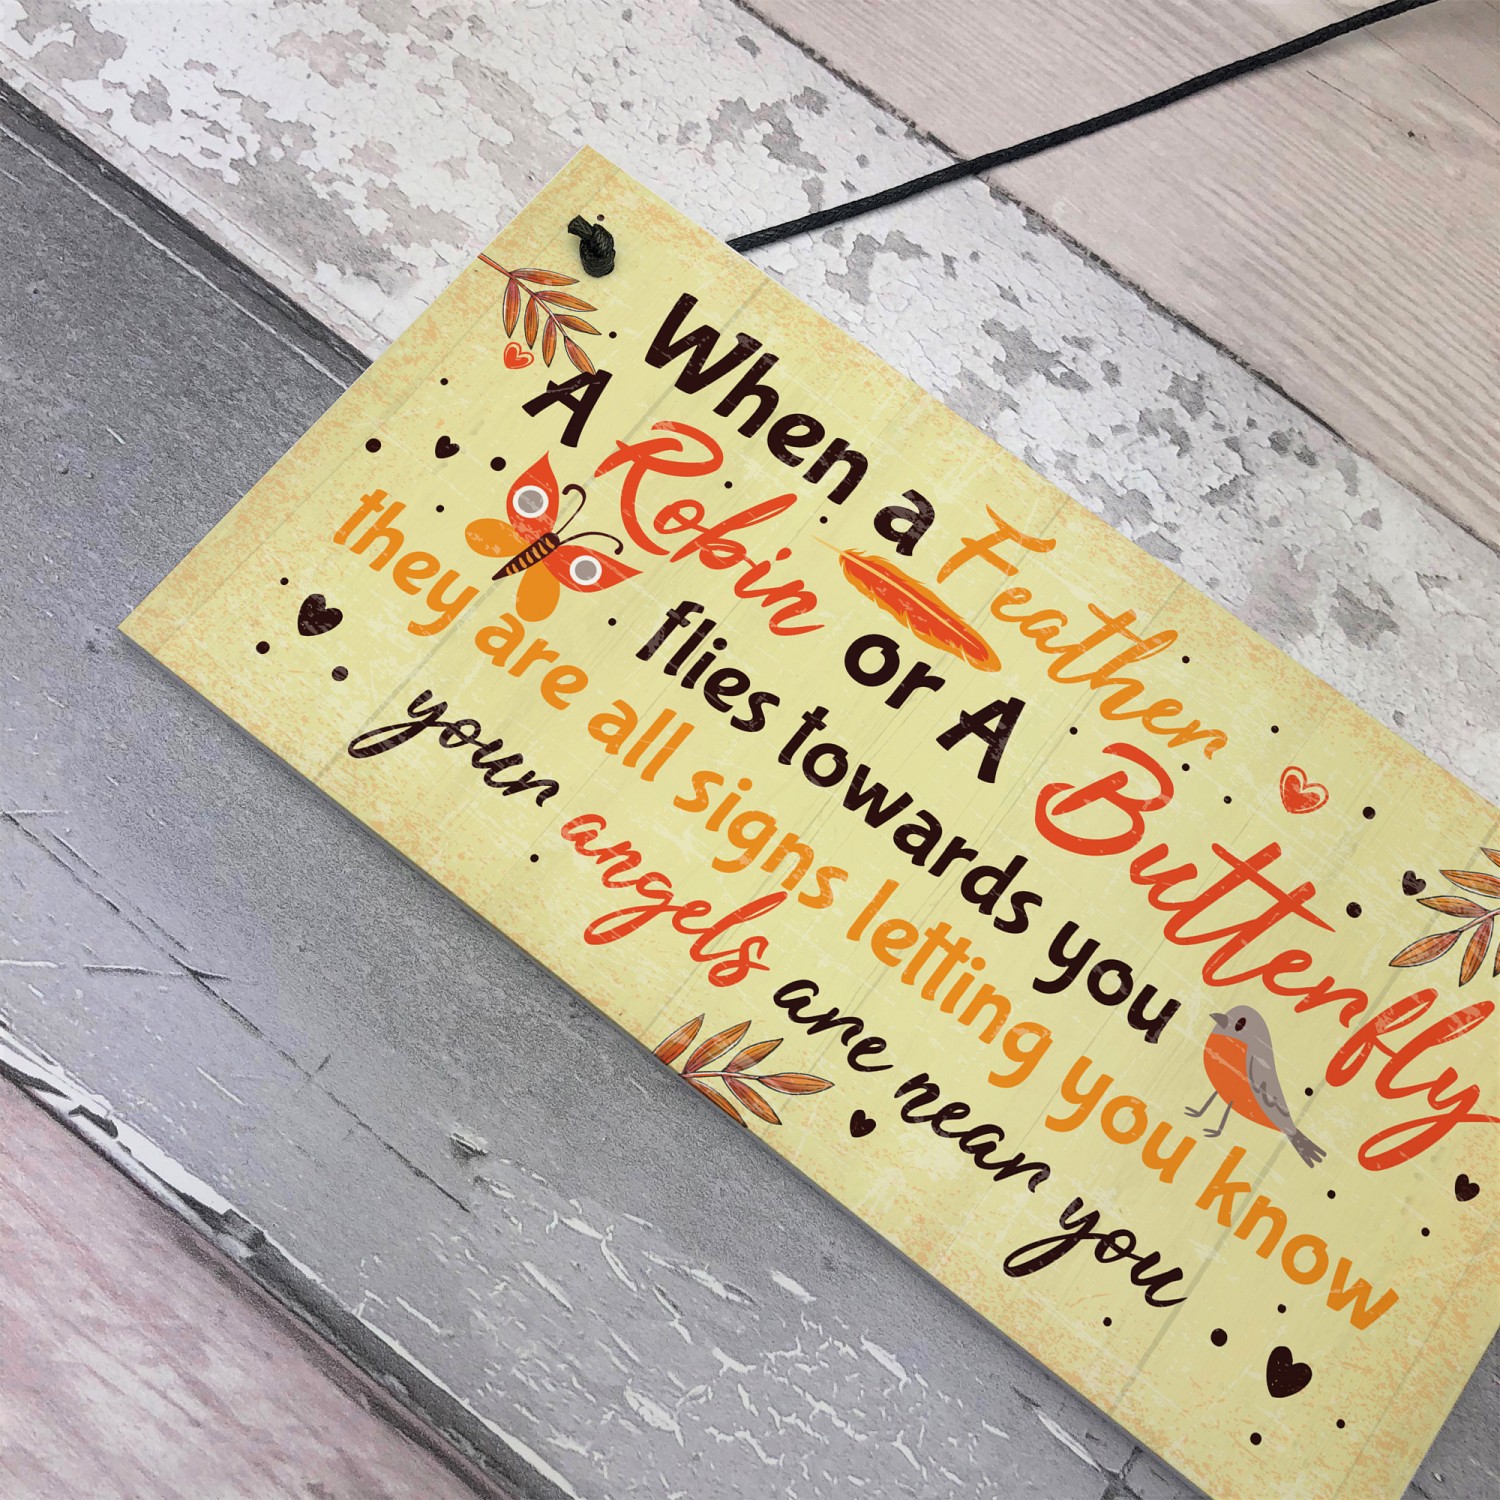 When a Feather
A Robin or A Butterfly
flies towards you
they are all signs letting you know
your angels are near you